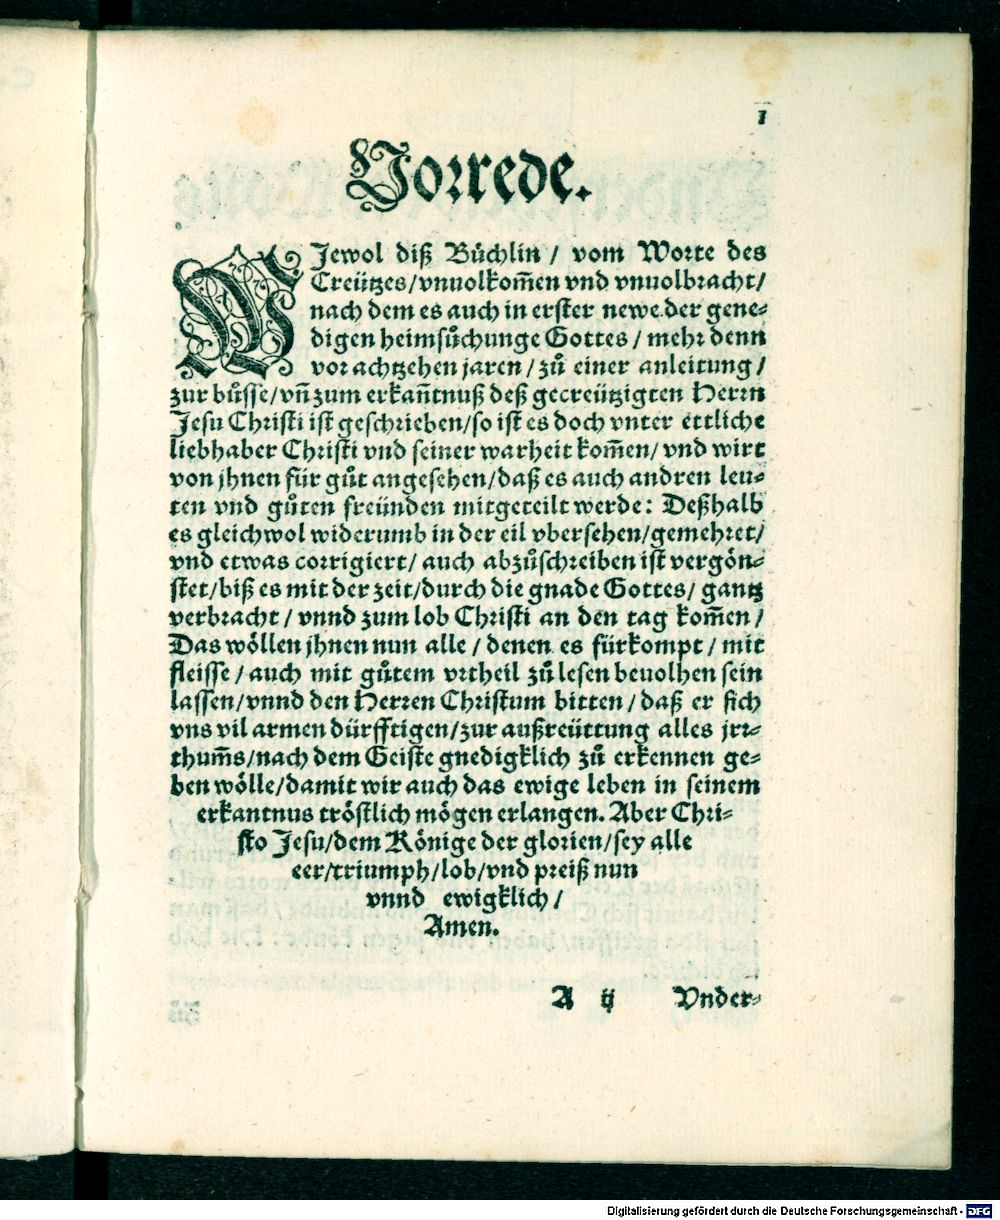 1
Vorrede.
WJewol diß Bůchlin / vom Worte des
Creützes/vnuolkom̄en vnd vnuolbracht/
nach dem es auch in erster newe der gene⸗
digen heimsůchunge Gottes / mehr denn
vor achtzehen jaren / zů einer anleitung /
zur bůsse/vn̄ zum erkan̄tnuß deß gecreützigten Herrn
Jesu Christi ist geschrieben/so ist es doch vnter ettliche
liebhaber Christi vnd seiner warheit kom̄en/ vnd wirt
von jhnen für gůt angesehen/daß es auch andren leu⸗
ten vnd gůten freünden mitgeteilt werde: Deßhalb
es gleichwol widerumb in der eil vbersehen/gemehret/
vnd etwas corrigiert/ auch abzůschreiben ist vergön⸗
stet/biß es mit der zeit/durch die gnade Gottes/ gantz
verbracht / vnnd zum lob Christi an den tag kom̄en /
Das wöllen jhnen nun alle / denen es fürkompt / mit
fleisse / auch mit gůtem vrtheil zů lesen beuolhen sein
lassen/vnnd den Herren Christum bitten / daß er sich
vns vil armen dürfftigen/zur außreüttung alles jrr⸗
thum̄s/nach dem Geiste gnedigklich zů erkennen ge⸗
ben wölle/damit wir auch das ewige leben in seinem
erkantnus tröstlich mögen erlangen. Aber Chri⸗
sto Jesu/dem Könige der glorien/sey alle
eer/triumph/lob/vnd preiß nun
vnnd ewigklich /
Amen.
A ij Vnder⸗
Digitalisierung gefördert durch die Deutsche Forschungsgemeinschaft - DFG